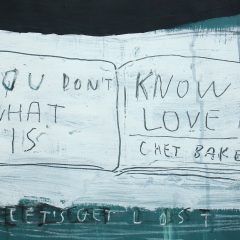 OU DON'T KNOW
WHAT LOVE
IS
CHET BAKE
LET'S GET LOST